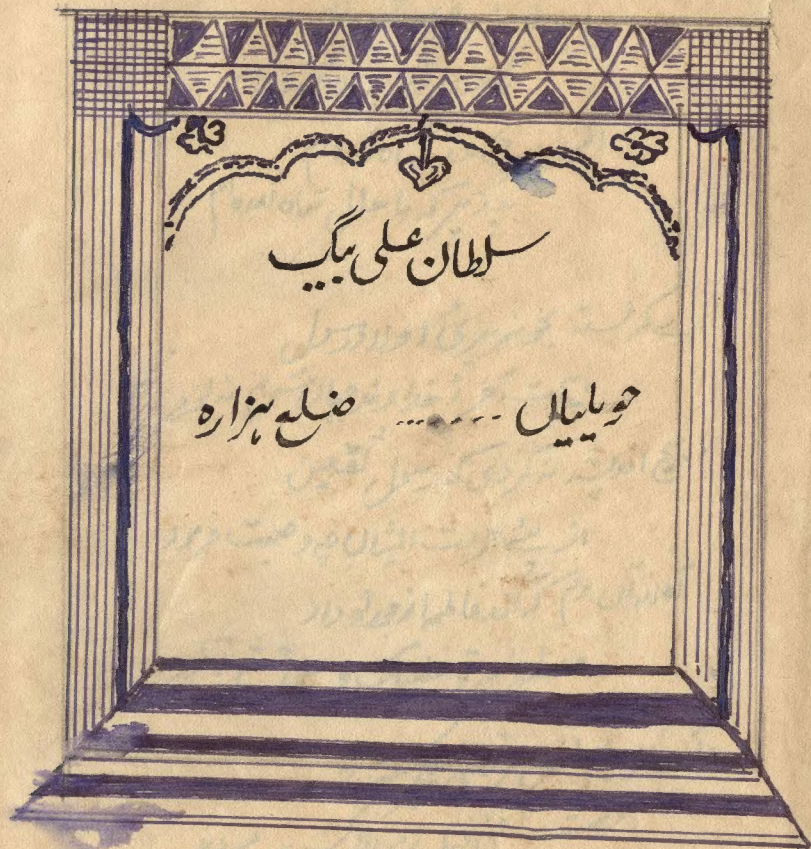 سلطان علی بیگ
حویلیاں ....... ضلع ہزارہ